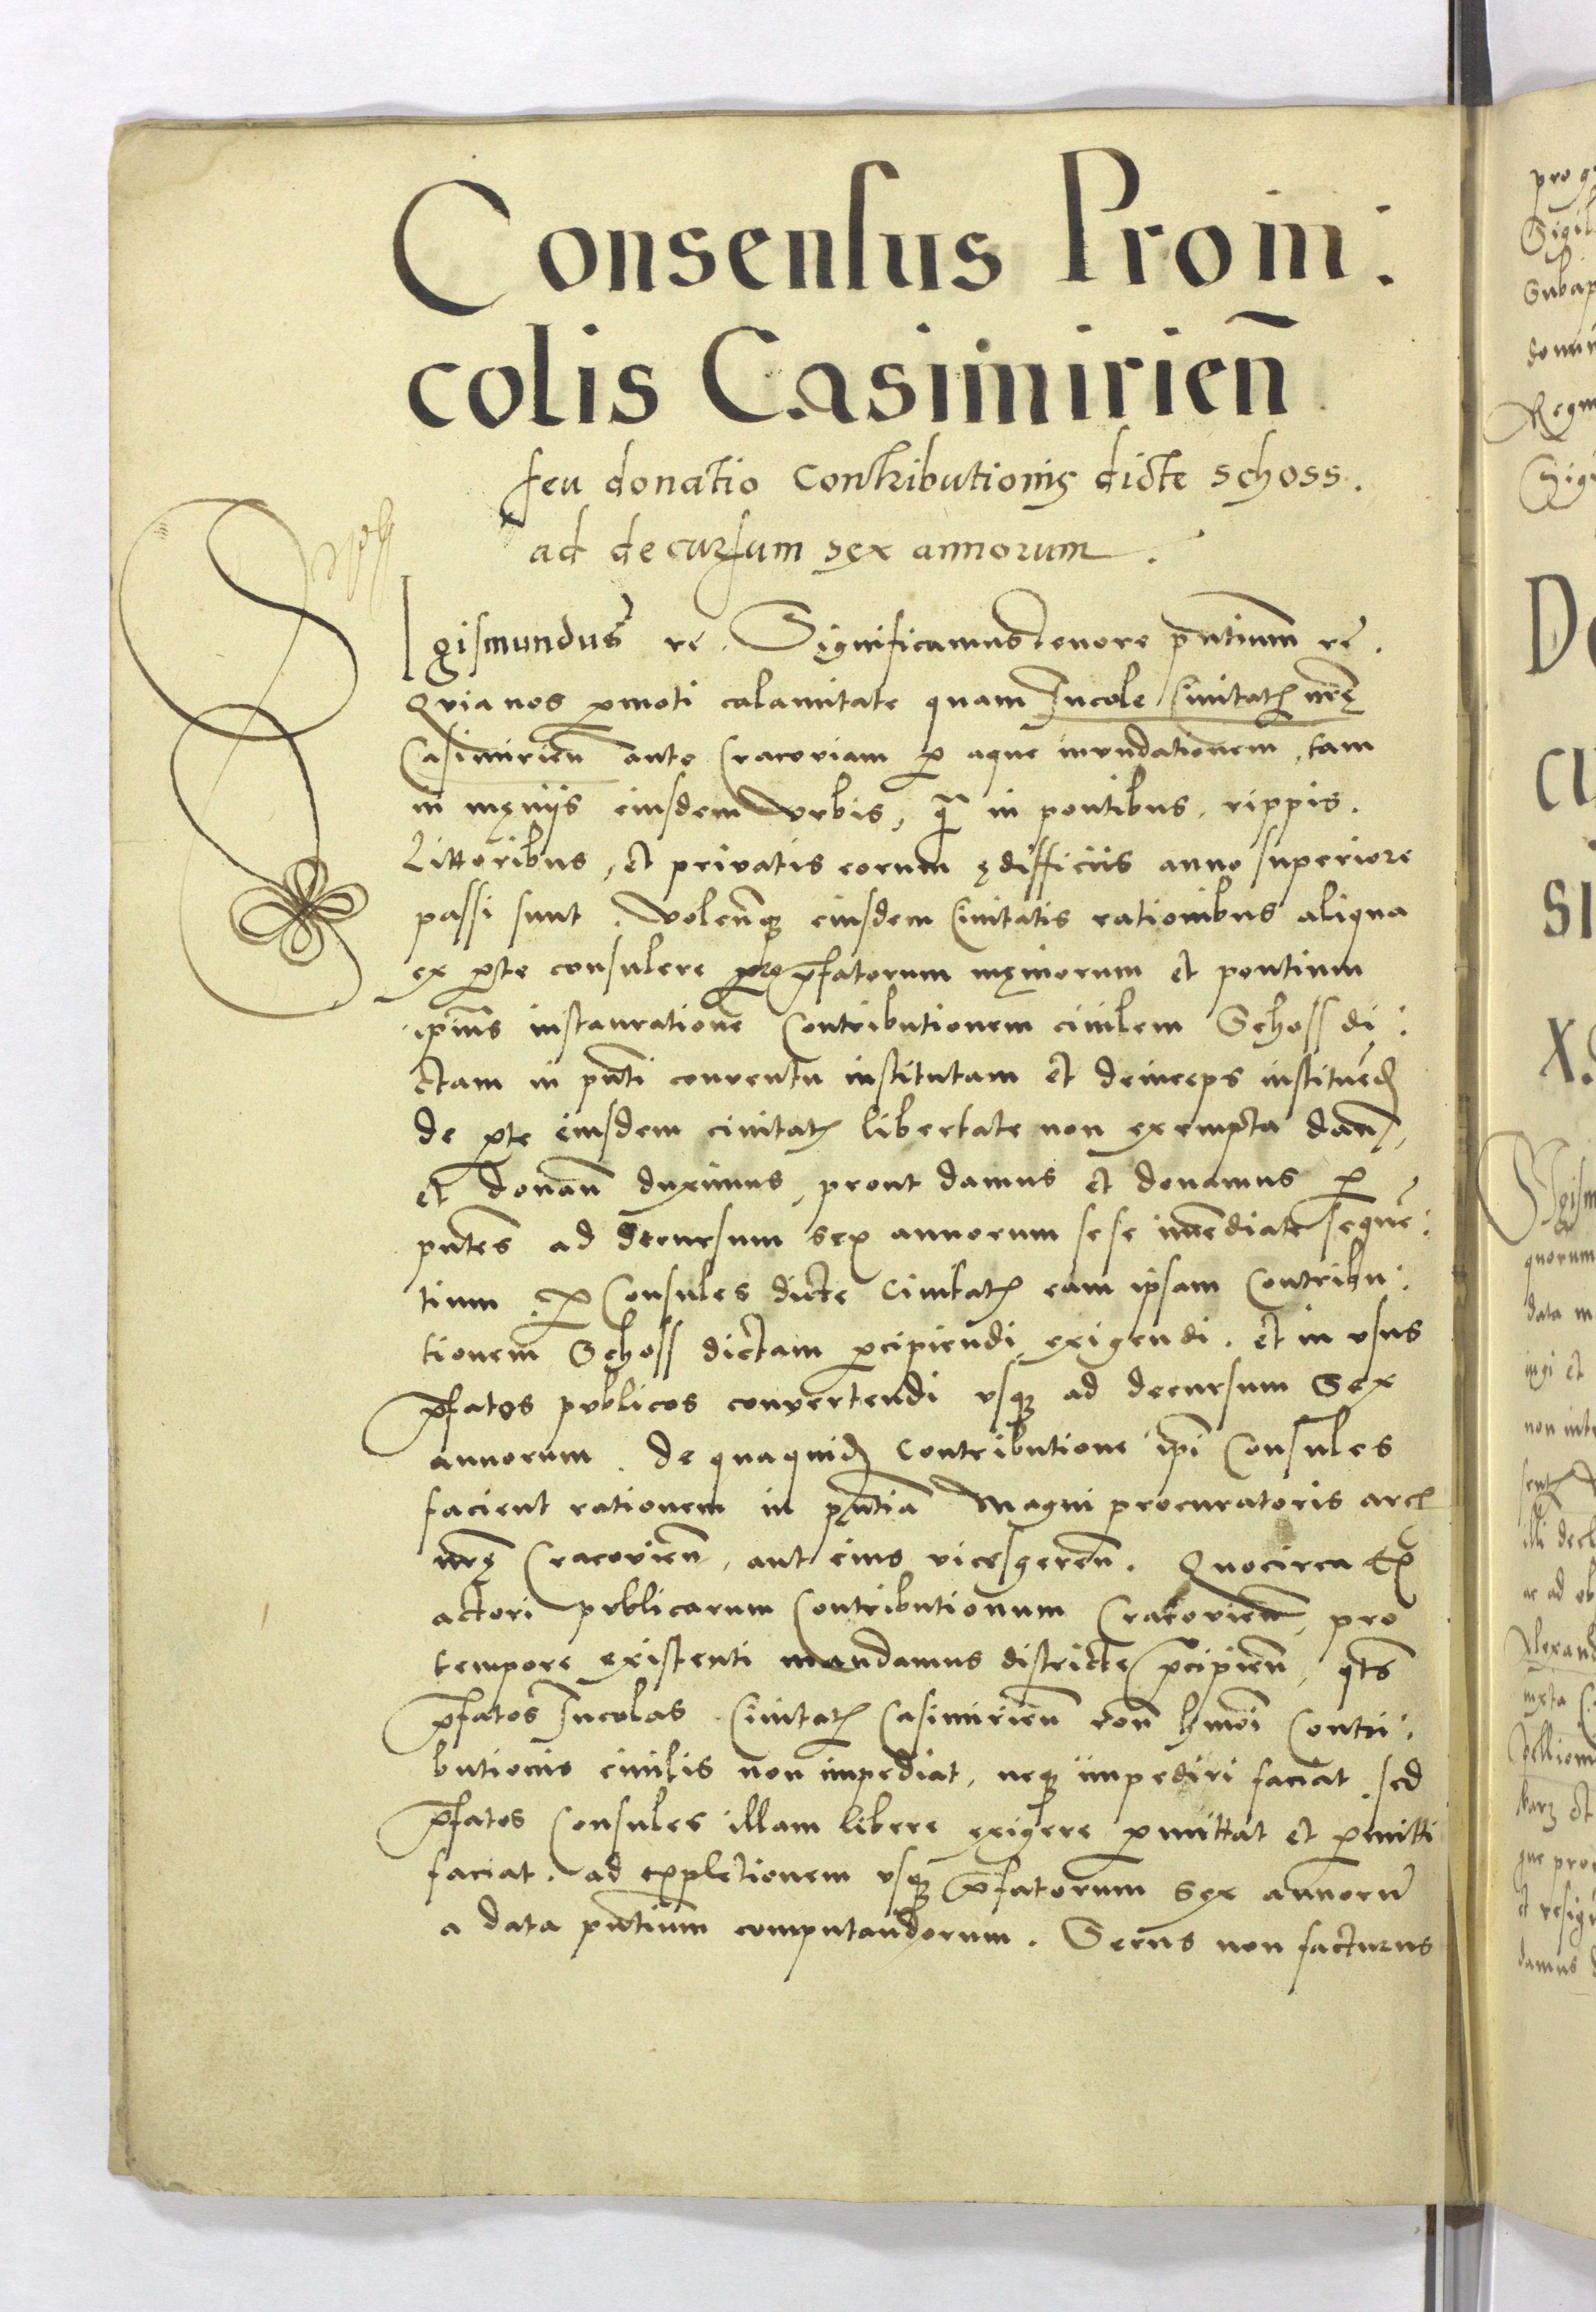 Consensus Pro in:
colis Casimirien̄
seu donatio Contributionis dicte schoss.
ad decursum sex annorum.
Sigismundus rē. Significamus tenore pn̄tium rē.
Quia nos pmoti calamitate quam Incole Ciuitatis nr̄ę
Casimirien̄ ante Cracoviam p aque inundationem, tam
in męniis eiusdem vrbis, q̄ in pontibus, rippis.
Littoribus, et privatis eorum ędifficiis anno superiore
passi sunt. volen̄q eiusdem Ciuitatis rationibus aliqua
ex pte consulere pro pfatorum męniorum et pontium
ip̄ius instauratione Contributionem ciuilem Schoss di:
ctam in pn̄ti conventu institutam et deinceps instituēd
de pte eiusdem ciuitatis libertate non exempta dan̄,
et donan̄ duximus, prout damus et donamus p
pn̄tes ad decursum sex annorum sese immediate sequē:
tium p Consules dicte Ciuitatis eam ipsam Contribu:
tionem Schoss dictam pcipiendi exigendi. et in vsus
pfatos publicos convertendi vsq ad decursum Sex
annorum. de quaquid Contributione ip̄i Consules
facient rationem in pn̄tia Magni procuratoris arcis
nr̄ę Cracovien̄, aut eius vicesgeren̄. Quocirca Ex
actori publicarum Contributionum Cracovien̄, pro
tempore existenti mandamus districte pcipien̄, qts
pfatos Incolas Ciuitatis Casimirien̄ ron̄ hmōi Contri:
butionis ciuilis non impediat, neq impediri faciat, sed
pfatos Consules illam libere exigere pmittat et pmitti
faciat. ad expletionem vsq pfatorum sex annorū
a data pn̄tium computandorum. Secus non facturus